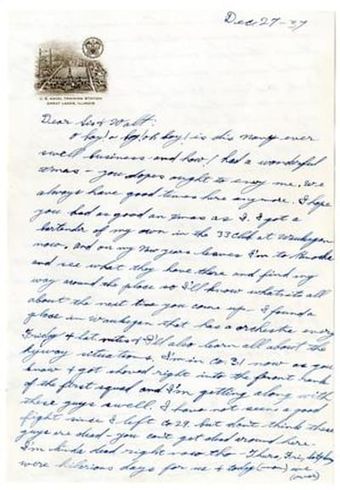 Dec 27-37
U.S. NAVAL TRAINING STATION
GREAT LAKES, ILLINOIS
Dear Sis & Walt:
O boy! o boy! oh boy! is this Navy ever
swell business and how. I had a wonderful
xmas - you dopes ought to envy me. We
always have good times here anymore. I hope
you had as good an xmas as I. I got a
bartender of my own in the 33 Club at Waukegan
now. and on my New years leave I'm to Kenosha
and see what they have there and find my
way around the place so I'll know what its all
about the next time you come up - I found a
place in Waukegan that has a orchestra every
Friday & Sat nites & I'll also learn all about the
situations. I'm in Co 31 now as you
know & got shoved right into the front rank
of the first squad and I'm getting along with
these guys swell. I have not seen a good
fight since I left Co 29. but don't think these
guys are dead - you can't get dead around here.
I'm kinda dead right now tho - Thurs, Fri, Satyday
were hilarious days for us & today (mon) we